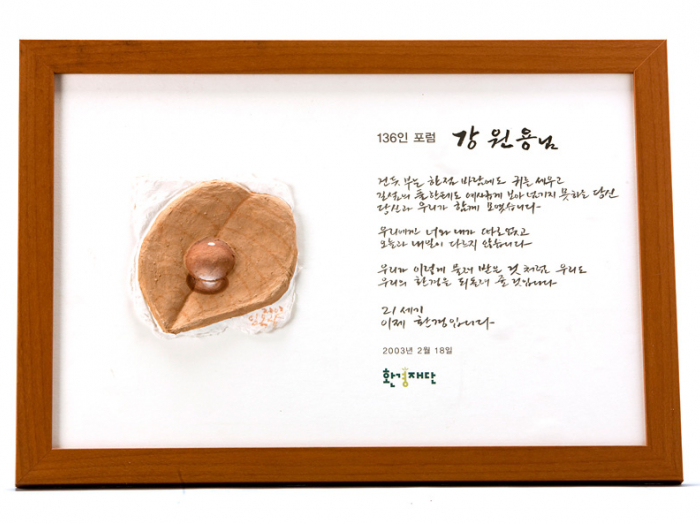 136인 포럼 강원용님
건듯 부는 한점 바람에도 귀를 세우고
길섶의 풀 한포기도 예사롭게 보아 넘기지 못하는 당신
당신과 우리가 함께 모였습니다-
우리에게는 너와 내가 따로없고
오늘과 내일이 다르지 않습니다-
우리가 이렇게 물려 받은 것 처럼 우리도
우리의 환경을 되돌려 줄 것입니다-
21 세기
이제 환경입니다-
2003년 2월 18일
환경재단